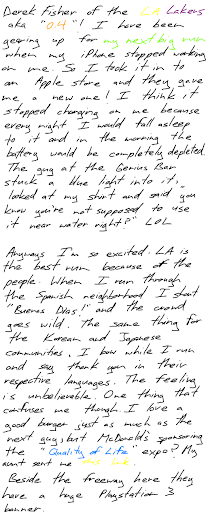 Derek Fisher of the LA Lakers
aka "04" I have been
gearing up for my next big run
when my iPhone stopped working
on me. So I took it in to
an Apple store and they gave
me a new one! I think it
stopped charging on me because
every night I would fall asleep
to it and in the morning the
battery would be completely depleted.
The guy at the Genius Bar
stuck a blue light into it,
looked at my shirt and said "you
know you're not supposed to use
it near water right?" LOL
Anyways I'm so excited. LA is
the best run because of the
people. When I run through
the Spanish neighborhood I shout
"Buenos Dias!" and the crowd
goes wild. The same thing for
the Korean and Japanese
communities. I bow while I run
and say thank you in their
respective languages. The feeling
is unbelievable. One thing that
confuses me though. I love a
good burger just as much as the
next guy but McDonalds sponsoring
the "Quality of Life" expo? My
aunt sent me
Beside the freeway here they
have a huge Playstation 3
banner.